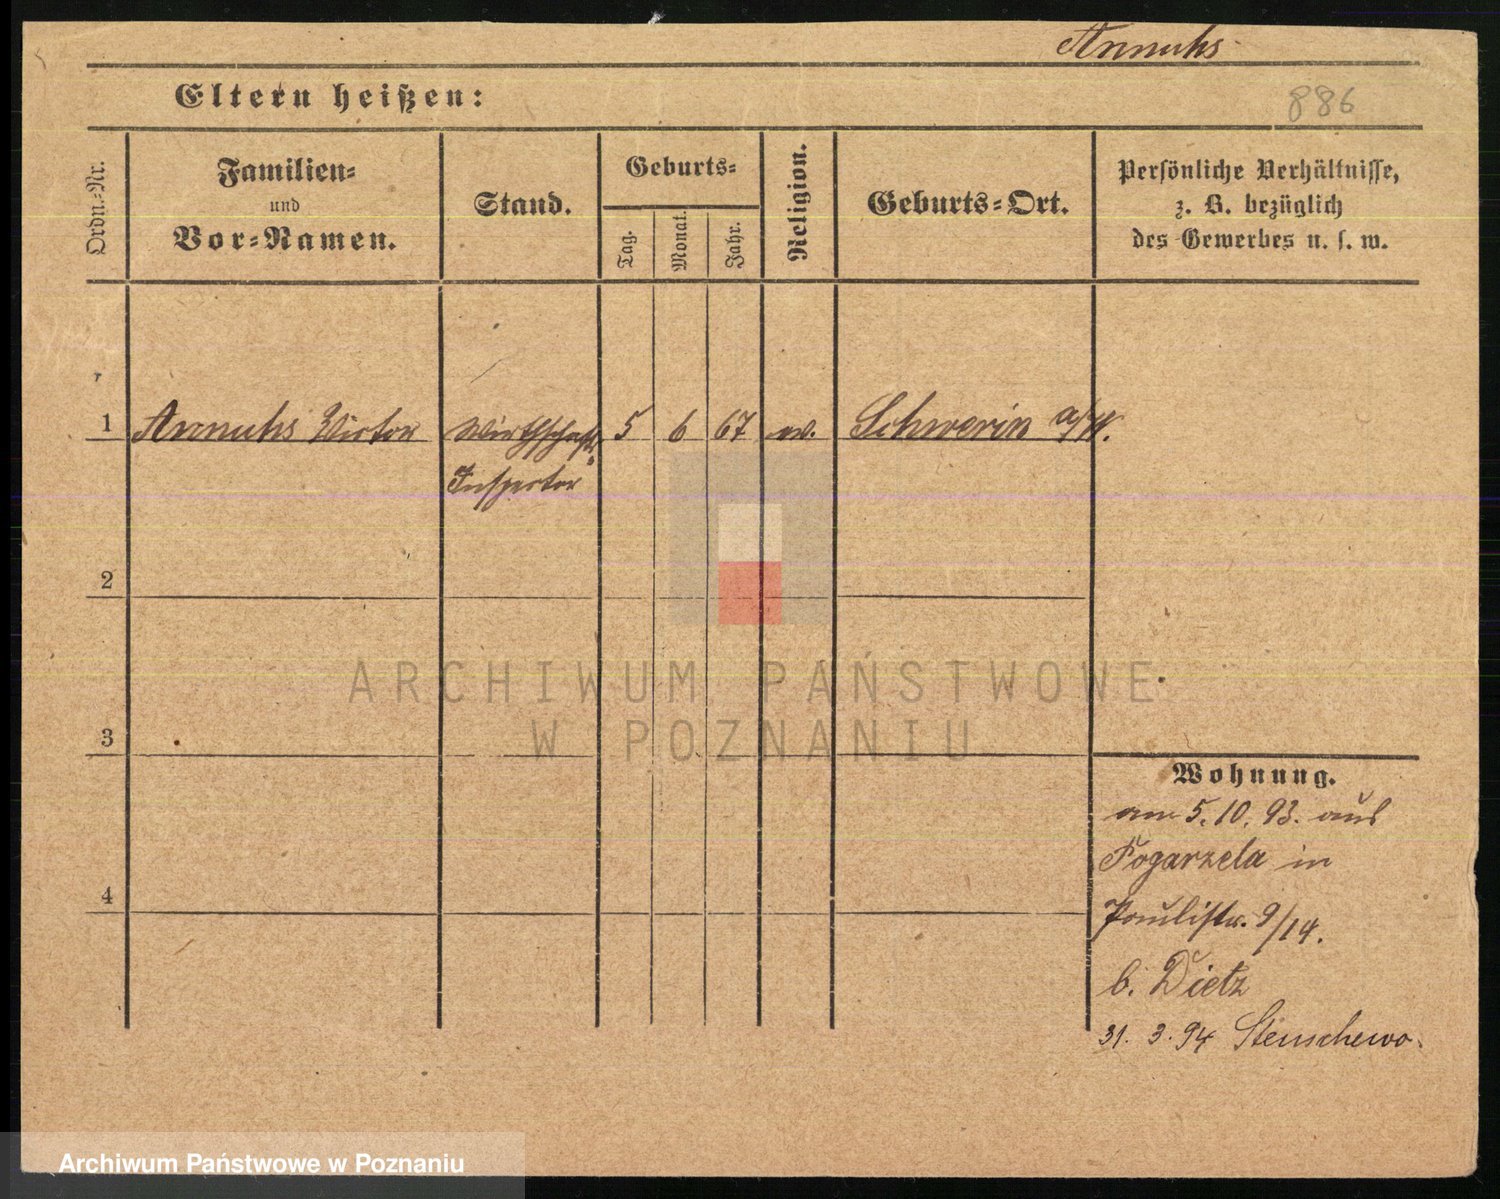 Annuhs
Eltern heißen:
886
Ordn.-Nr.
Familien-
und
Vor-Namen.
Stand.
Geburts-
Tag.
Monat.
Jahr.
Religion.
Geburts-Ort.
Persönliche Verhältnisse,
z. B. bezüglich
des Gewerbes u. s. w.
1 Annuhs Victor Wirthschafts- 5 6 67 ev. Schwerin a/W.
Inspector
2
ARCHIWUM PAŃSTWOWE
W POZNANIU
3
Wohnung.
am 5.10.93. aus
Pogarzela in
4
Paulistr. 9/14.
b. Dietz
31. 3. 94 Stenschewo.
Archiwum Państwowe w Poznaniu